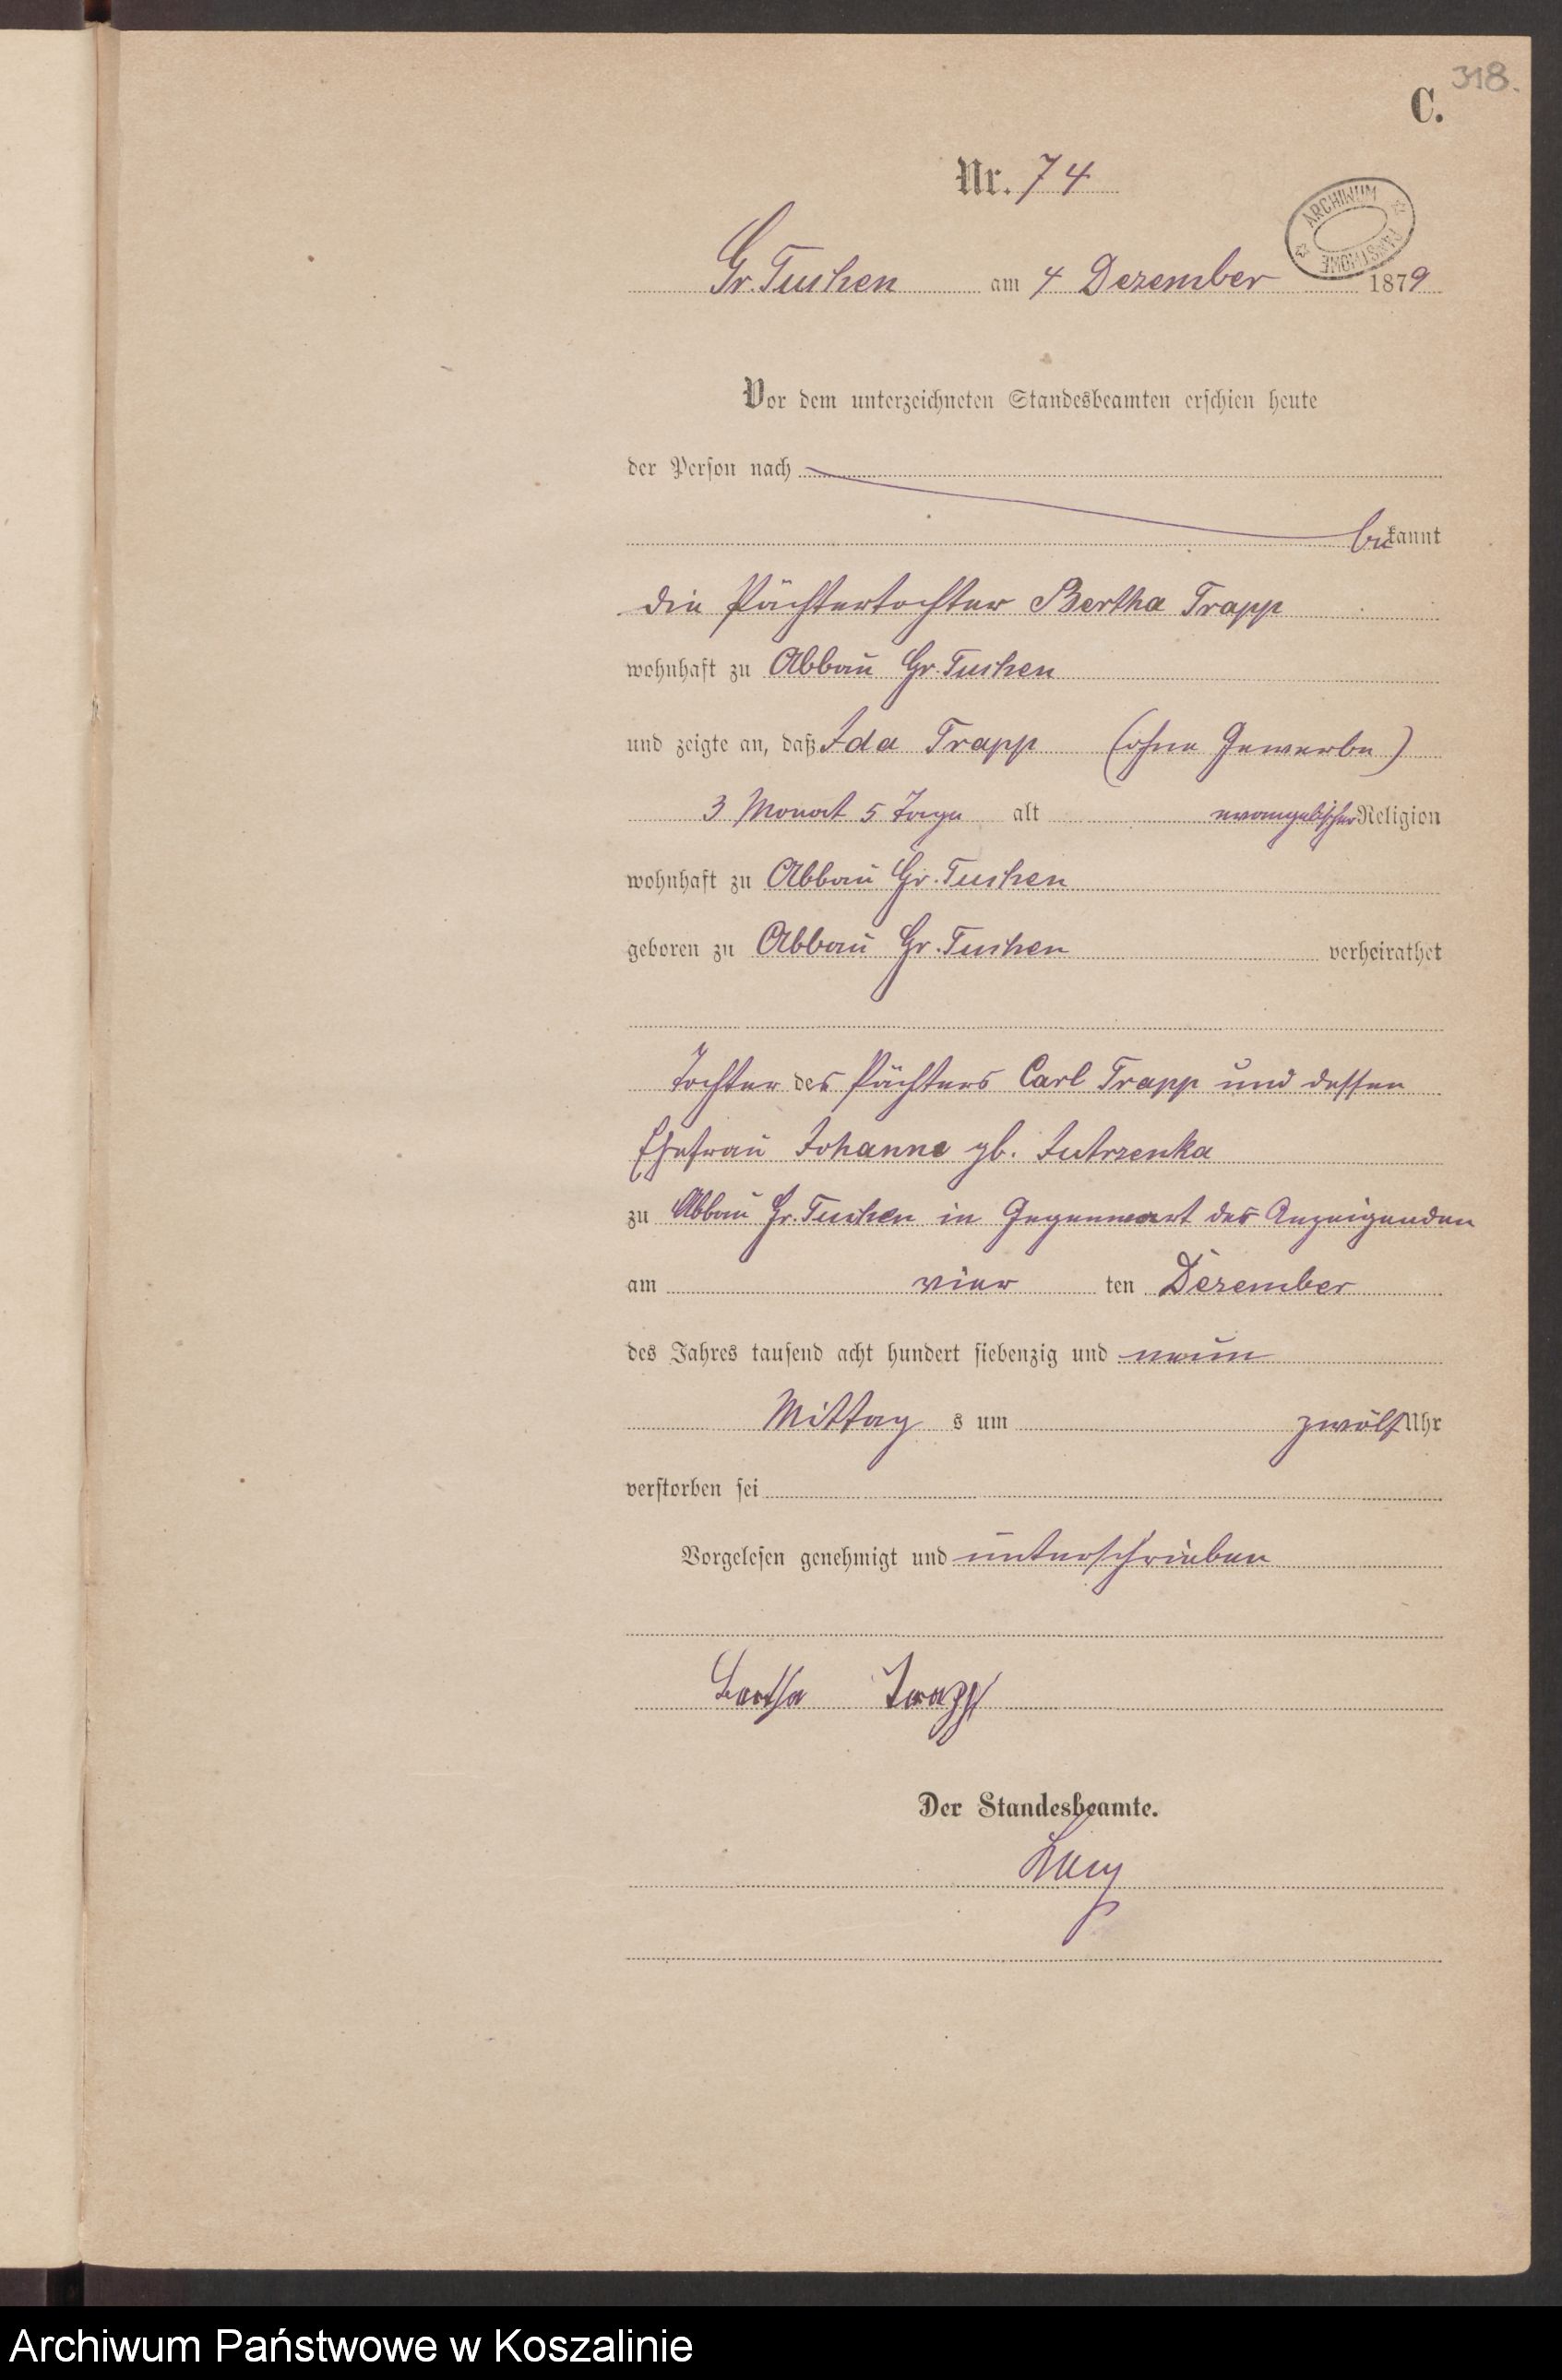 318.
C.
Nr. 74
ARCHIWUM PAŃSTWOWE
Gr. Tuchen am 4 Dezember 1879
Vor dem unterzeichneten Standesbeamten erschien heute
der Person nach
bekannt
die Pächtertochter Bertha Trapp
wohnhaft zu Abbau Gr. Tuchen
und zeigte an, daß Ida Trapp (ohne Gewerbe)
3 Monat 5 Tage alt evangelischer Religion
wohnhaft zu Abbau Gr. Tuchen
geboren zu Abbau Gr. Tuchen verheirathet
Tochter des Pächters Carl Trapp und dessen
Ehefrau Johanne gb. Jutrzenka
zu Abbau Gr. Tuchen in Gegenwart des Anzeigenden
am vier ten Dezember
des Jahres tausend acht hundert siebenzig und neun
Mittag s um zwölf Uhr
verstorben sei
Vorgelesen genehmigt und unterschrieben
Bertha Trapp
Der Standesbeamte.
Archiwum Państwowe w Koszalinie